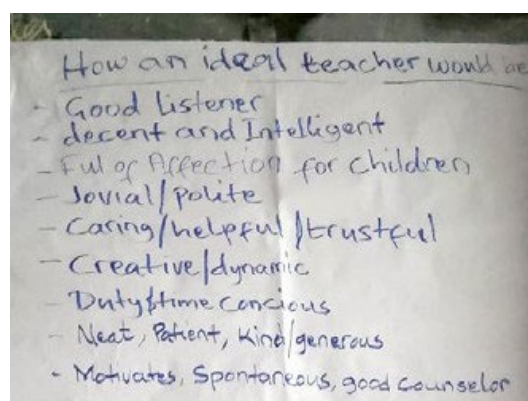 How an ideal teacher would be
- Good listener
- decent and Intelligent
- Ful of Affection for children
- Jovial/polite
- Caring/helpful/trustful
- Creative/dynamic
- Duty$time concious
- Neat, Patient, Kind/generous
- Motivates, Spontaneous, good counselor